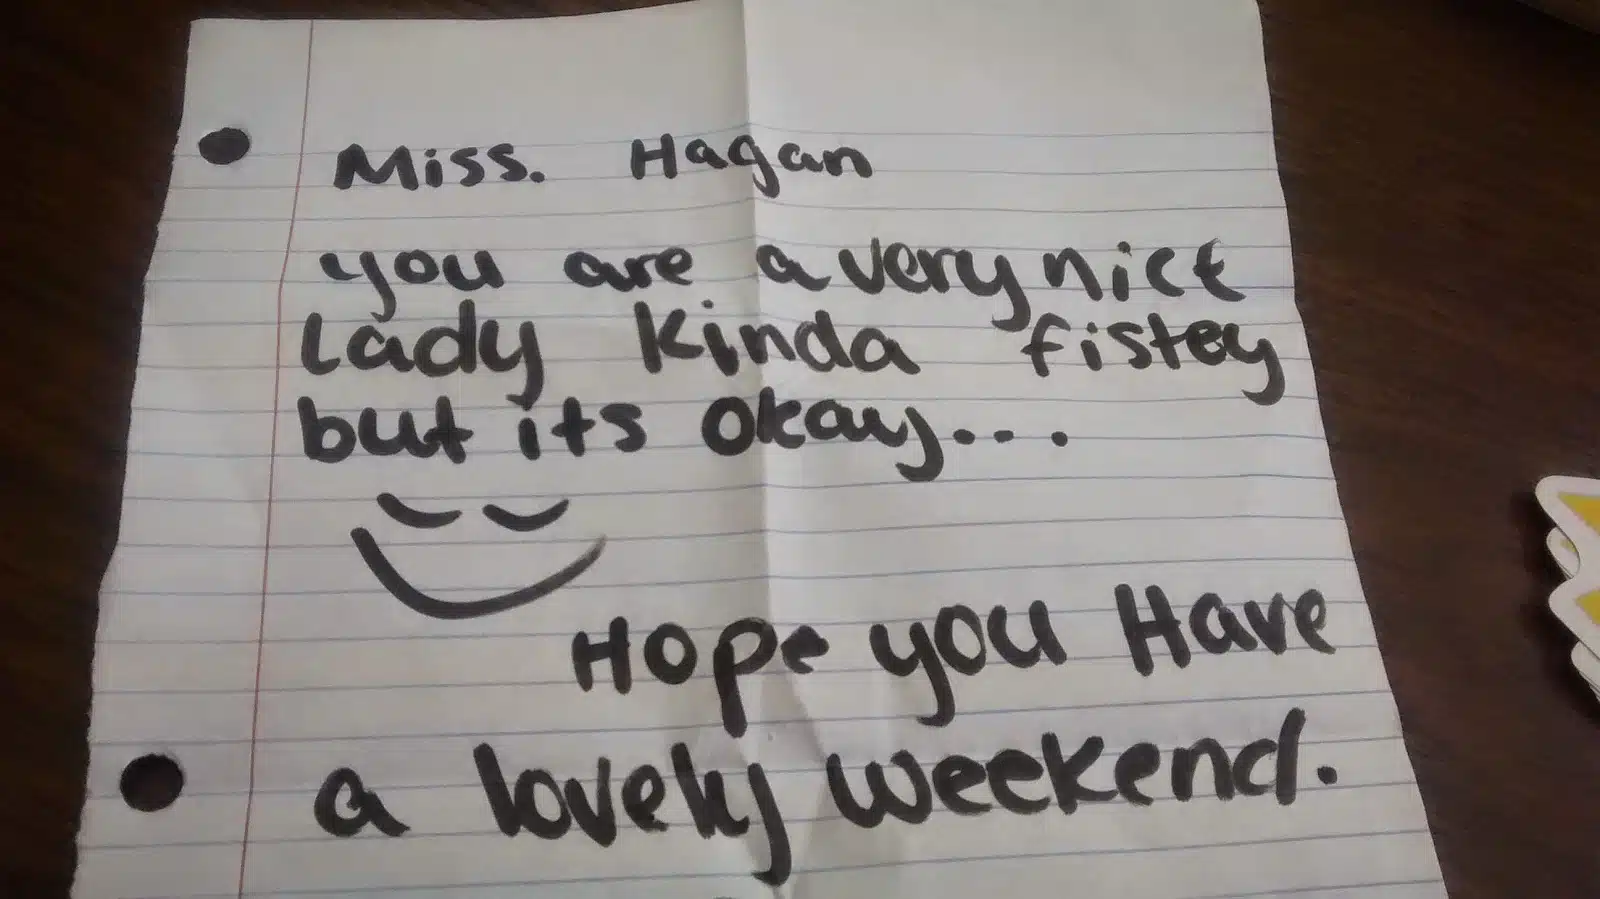 Miss. Hagan
you are a very nice
Lady Kinda fistey
but its okay...
Hope you Have
a lovely weekend.